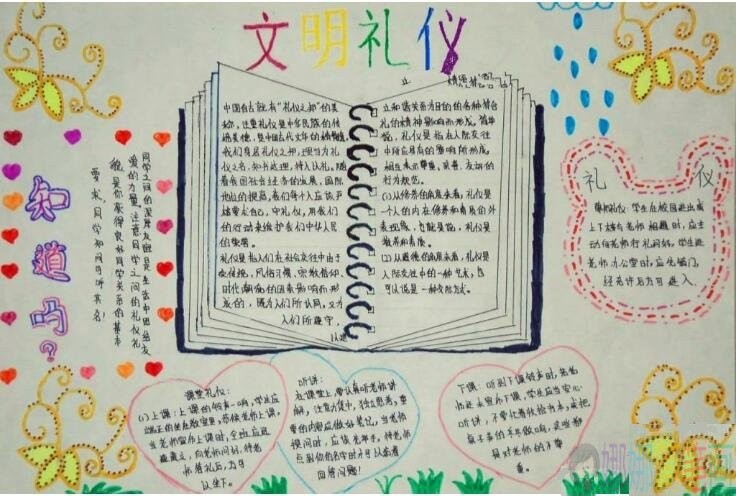 文明礼仪
中国自古就有"礼仪之邦"的美
称，注重礼仪是中华民族的传
统美德，是中国古代文年的精髓。
我们身居礼仪之邦，理当为礼
仪之民，知书达理，待人以礼。随
着我国社会经济的发展，国际
地位的提高，我们每个人应该严
格要求自己，守礼仪，用我们
的行动来维护我们中华人民
的荣誉。
礼仪是指人们在社会交往中由于
受传统，风俗习惯，宗教信仰
时代潮流的因素影响而形
成的，既为人们所认同，又为
人们所遵守，
以建
立和谐关系为目的的各种符合
礼的精神
礼仪是指在人际交往
中
相互表示尊重、友好的
行为规范。
(1)从修养的角度来看，礼仪是
一个人的内在修养和素质的外
表现，也就是说，礼仪是
教养和素质。
(2)从道德的角度来看，礼仪是
人际交往中的一种艺术，也
可以说是一种交际方式。
知道吗?
同学之间的深厚友谊是生活中团结友
爱的力量，注意同学之间的礼仪礼
貌，是你获得良好同学关系的基本
要求，同学知间可
礼仪
尊师礼仪：学生在校园进出或
上下楼与老师相遇时，应主
动向老师行礼问好。学生进
老师办公室时，应先敲门，
经允许后方可进入。
课堂礼仪：
(1)上课：上课的铃声一响，学生应
端正的坐在教室里，恭候老师上课，
当老师宣布上课时，全班应迅
速肃立，向老师问好，待老
师答礼后，方可
以坐下。
听讲：
在课堂上，要认真听老师讲
解，注意力集中，独立思考，重
要的内容应做好笔记，当老师
提问时，应该先举手，待老师
点到你的名字时才可以站着
回答问题！
下课：听到下课铃声时，若老
师还未宣布下课，学生应当安心
听讲，不要忙着收拾书本，或把
桌子弄得乒乓响，这些都
是对老师的不尊
重。